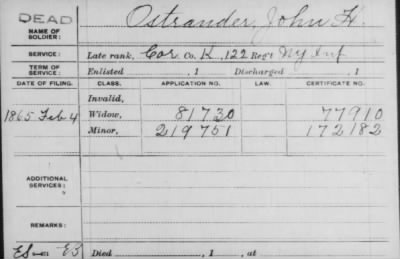 DEAD
NAME OF SOLDIER: Ostrander, John H.
SERVICE: Late rank, Cor Co. K, 122 Reg't Ny Inf
TERM OF SERVICE: Enlisted , 1 Discharged , 1
DATE OF FILING. CLASS. APPLICATION NO. LAW. CERTIFICATE NO.
Invalid,
1865 Feb 4 Widow, 81730 77910
Minor, 219751 172182
ADDITIONAL SERVICES:
REMARKS:
Died , 1 , at